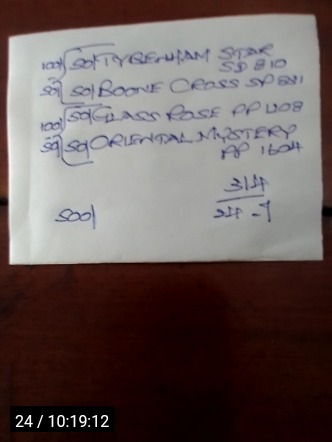 100/ 50/ TYBENHAM STAR
SP 810
50/ 50/ BOOVE CROSS SP 811
100/ 50/ GLASS ROSE PP 1208
50/ 50/ ORIENTAL MYSTERY
PP 1604
314
500/
24 - 7
24 / 10:19:12